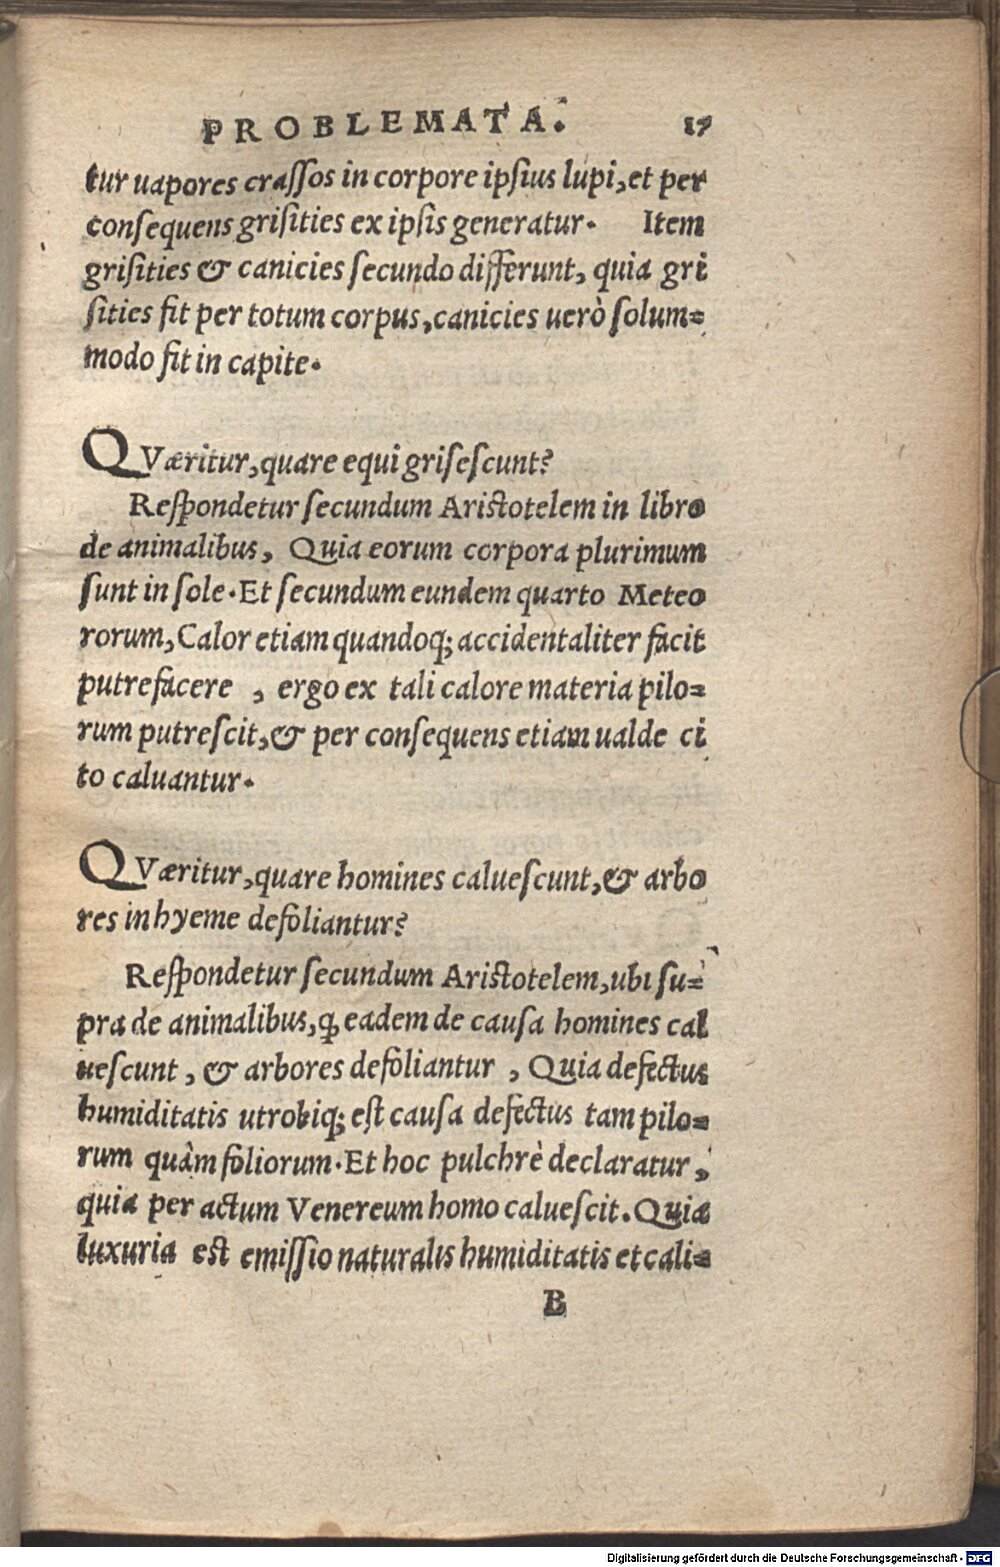 PROBLEMATA. 17
tur uapores craſſos in corpore ipſius lupi, et per
conſequens griſities ex ipſis generatur. Item
griſities & canicies ſecundo differunt, quia gri
ſities fit per totum corpus, canicies uerò ſolum=
modo fit in capite.
QVæritur, quare equi griſeſcunt?
Reſpondetur ſecundum Ariſtotelem in libro
de animalibus, Quia eorum corpora plurimum
ſunt in ſole. Et ſecundum eundem quarto Meteo
rorum, Calor etiam quandoq; accidentaliter facit
putrefacere , ergo ex tali calore materia pilo=
rum putreſcit, & per conſequens etiam ualde ci
to caluantur.
QVæritur, quare homines calueſcunt, & arbo
res in hyeme defoliantur?
Reſpondetur ſecundum Ariſtotelem, ubi ſu=
pra de animalibus, ꝙ eadem de cauſa homines cal
ueſcunt , & arbores defoliantur , Quia defectus
humiditatis utrobiq; eſt cauſa defectus tam pilo=
rum quàm foliorum. Et hoc pulchrè declaratur,
quia per actum Venereum homo calueſcit. Quia
luxuria eſt emiſſio naturalis humiditatis et cali=
B
Digitalisierung gefördert durch die Deutsche Forschungsgemeinschaft - DFG